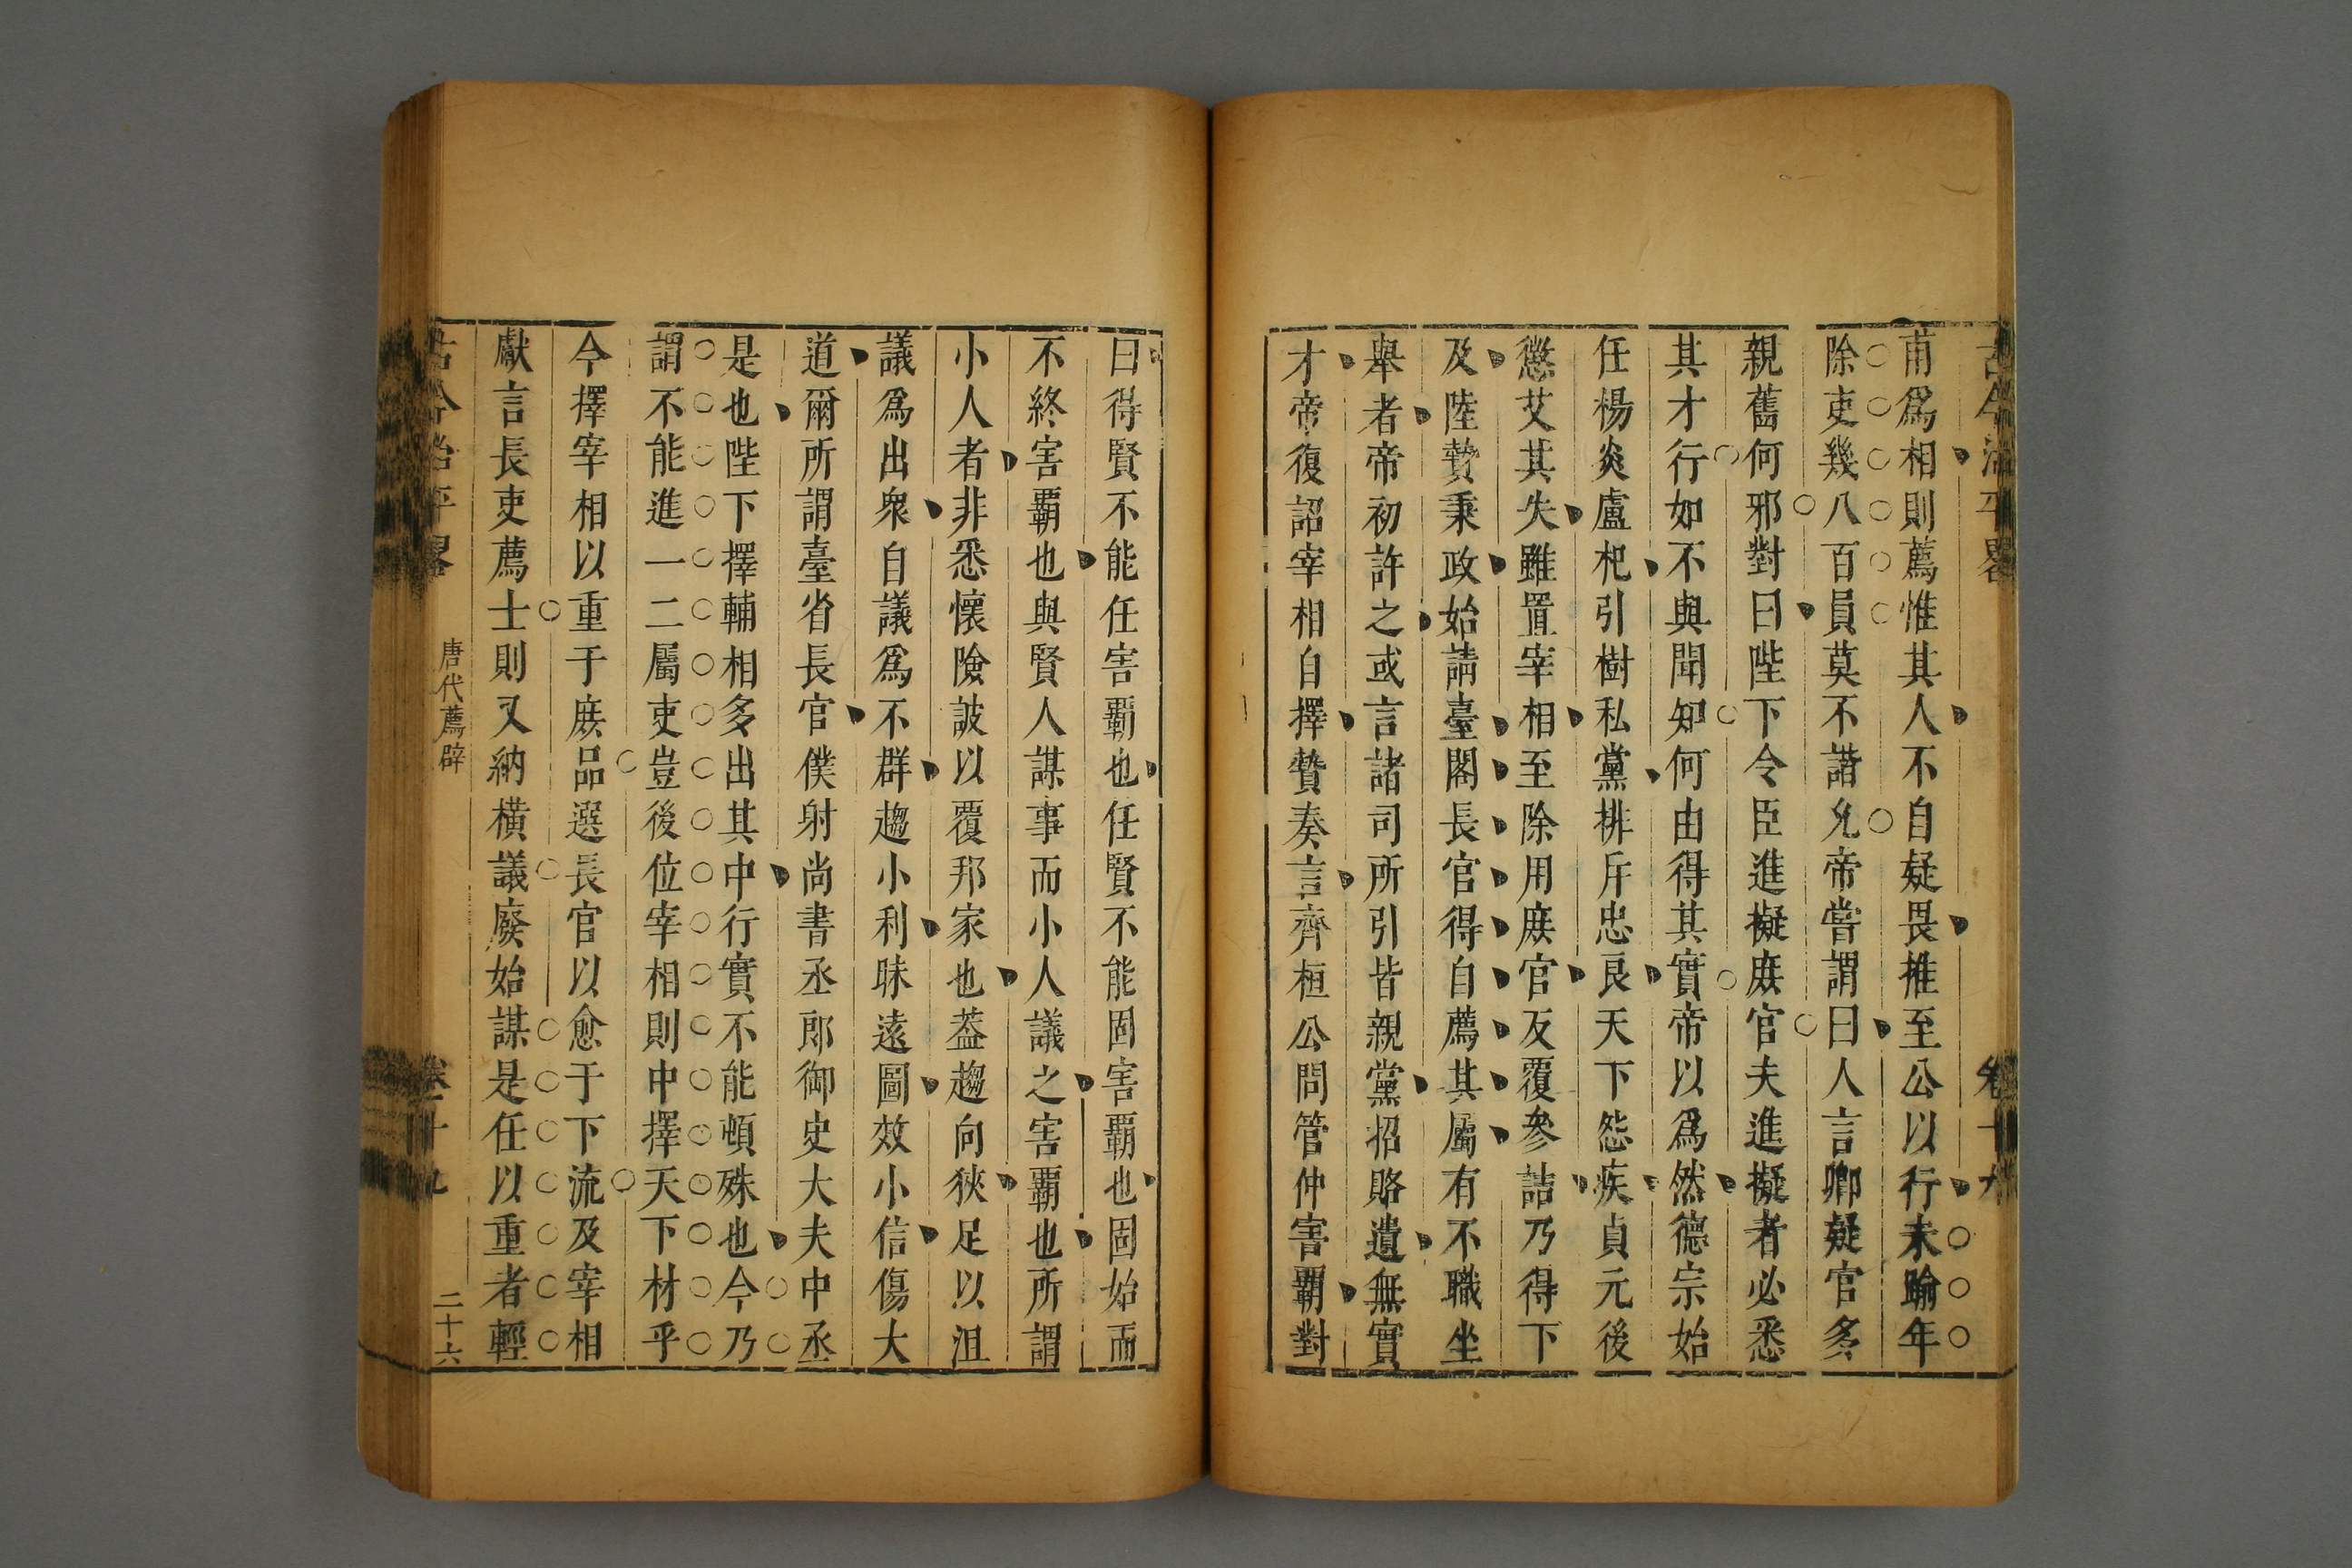 古今治平畧
卷十九
甫爲相則薦惟其人不自疑畏推至公以行未踰年
除吏幾八百員莫不諧允帝嘗謂曰人言卿擬官多
親舊何邪對曰陛下令臣進擬庶官夫進擬者必悉
其才行如不與聞知何由得其實帝以爲然德宗始
任楊炎盧杞引樹私黨排斥忠良天下怨疾貞元後
懲艾其失雖置宰相至除用庶官反覆參詰乃得下
及陸贄秉政始請臺閣長官得自薦其屬有不職坐
舉者帝初許之或言諸司所引皆親黨招賂遺無實
才帝復詔宰相自擇贄奏言齊桓公問管仲害霸對
曰得賢不能任害霸也任賢不能固害霸也固始而
不終害霸也與賢人謀事而小人議之害霸也所謂
小人者非悉懷險詖以覆邦家也葢趨向狹足以沮
議爲出衆自議爲不群趨小利昧遠圖效小信傷大
道爾所謂臺省長官僕射尚書丞郎御史大夫中丞
是也陛下擇輔相多出其中行實不能頓殊也今乃
謂不能進一二屬吏豈後位宰相則中擇天下材乎
今擇宰相以重于庶品選長官以愈于下流及宰相
獻言長吏薦士則又納橫議廢始謀是任以重者輕
古今治平畧
唐代薦辟
卷十九
二十六